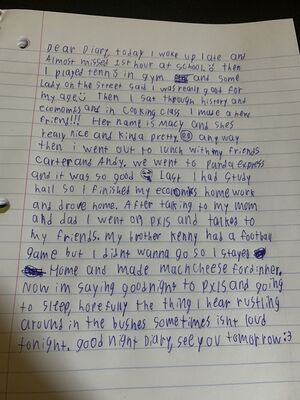 Dear Diary, today I woke up late and
Almost missed 1st hour at school. Then
I played tennis in gym and some
Lady on the street said I was really good for
my age. Then I sat through history and
economics and in cooking class I made a new
friend!!! Her name is Macy and shes
really nice and kinda pretty. any way
then i went out to lunch with my friends
Carter and Andy, we went to Panda Express
and it was so good Last I had study
hall so I finished my economics homework
and drove home. After talking to my mom
and dad I went on pxis and talked to
my friends. My brother Kenny had a football
game but I didnt wanna go so I stayed
Home and made mac n cheese for dinner.
Now im saying goodnight to pxis and going
to sleep, hopefully the thing I hear rustling
around in the bushes sometimes isnt loud
tonight. good night diary, see you tomorrow :3